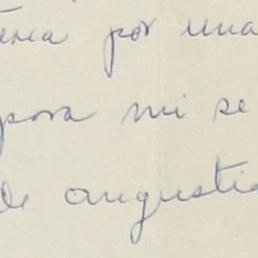 por una
para mi se
de angustia